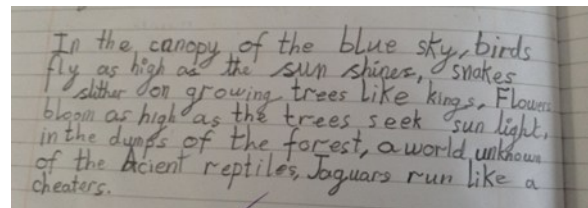 In the canopy of the blue sky, birds
fly as high as the sun shines, snakes
slither on growing trees like kings. Flowers
bloom as high as the trees seek sun light,
in the dumps of the forest, a world unknown
of the acient reptiles, Jaguars run like a
cheaters.